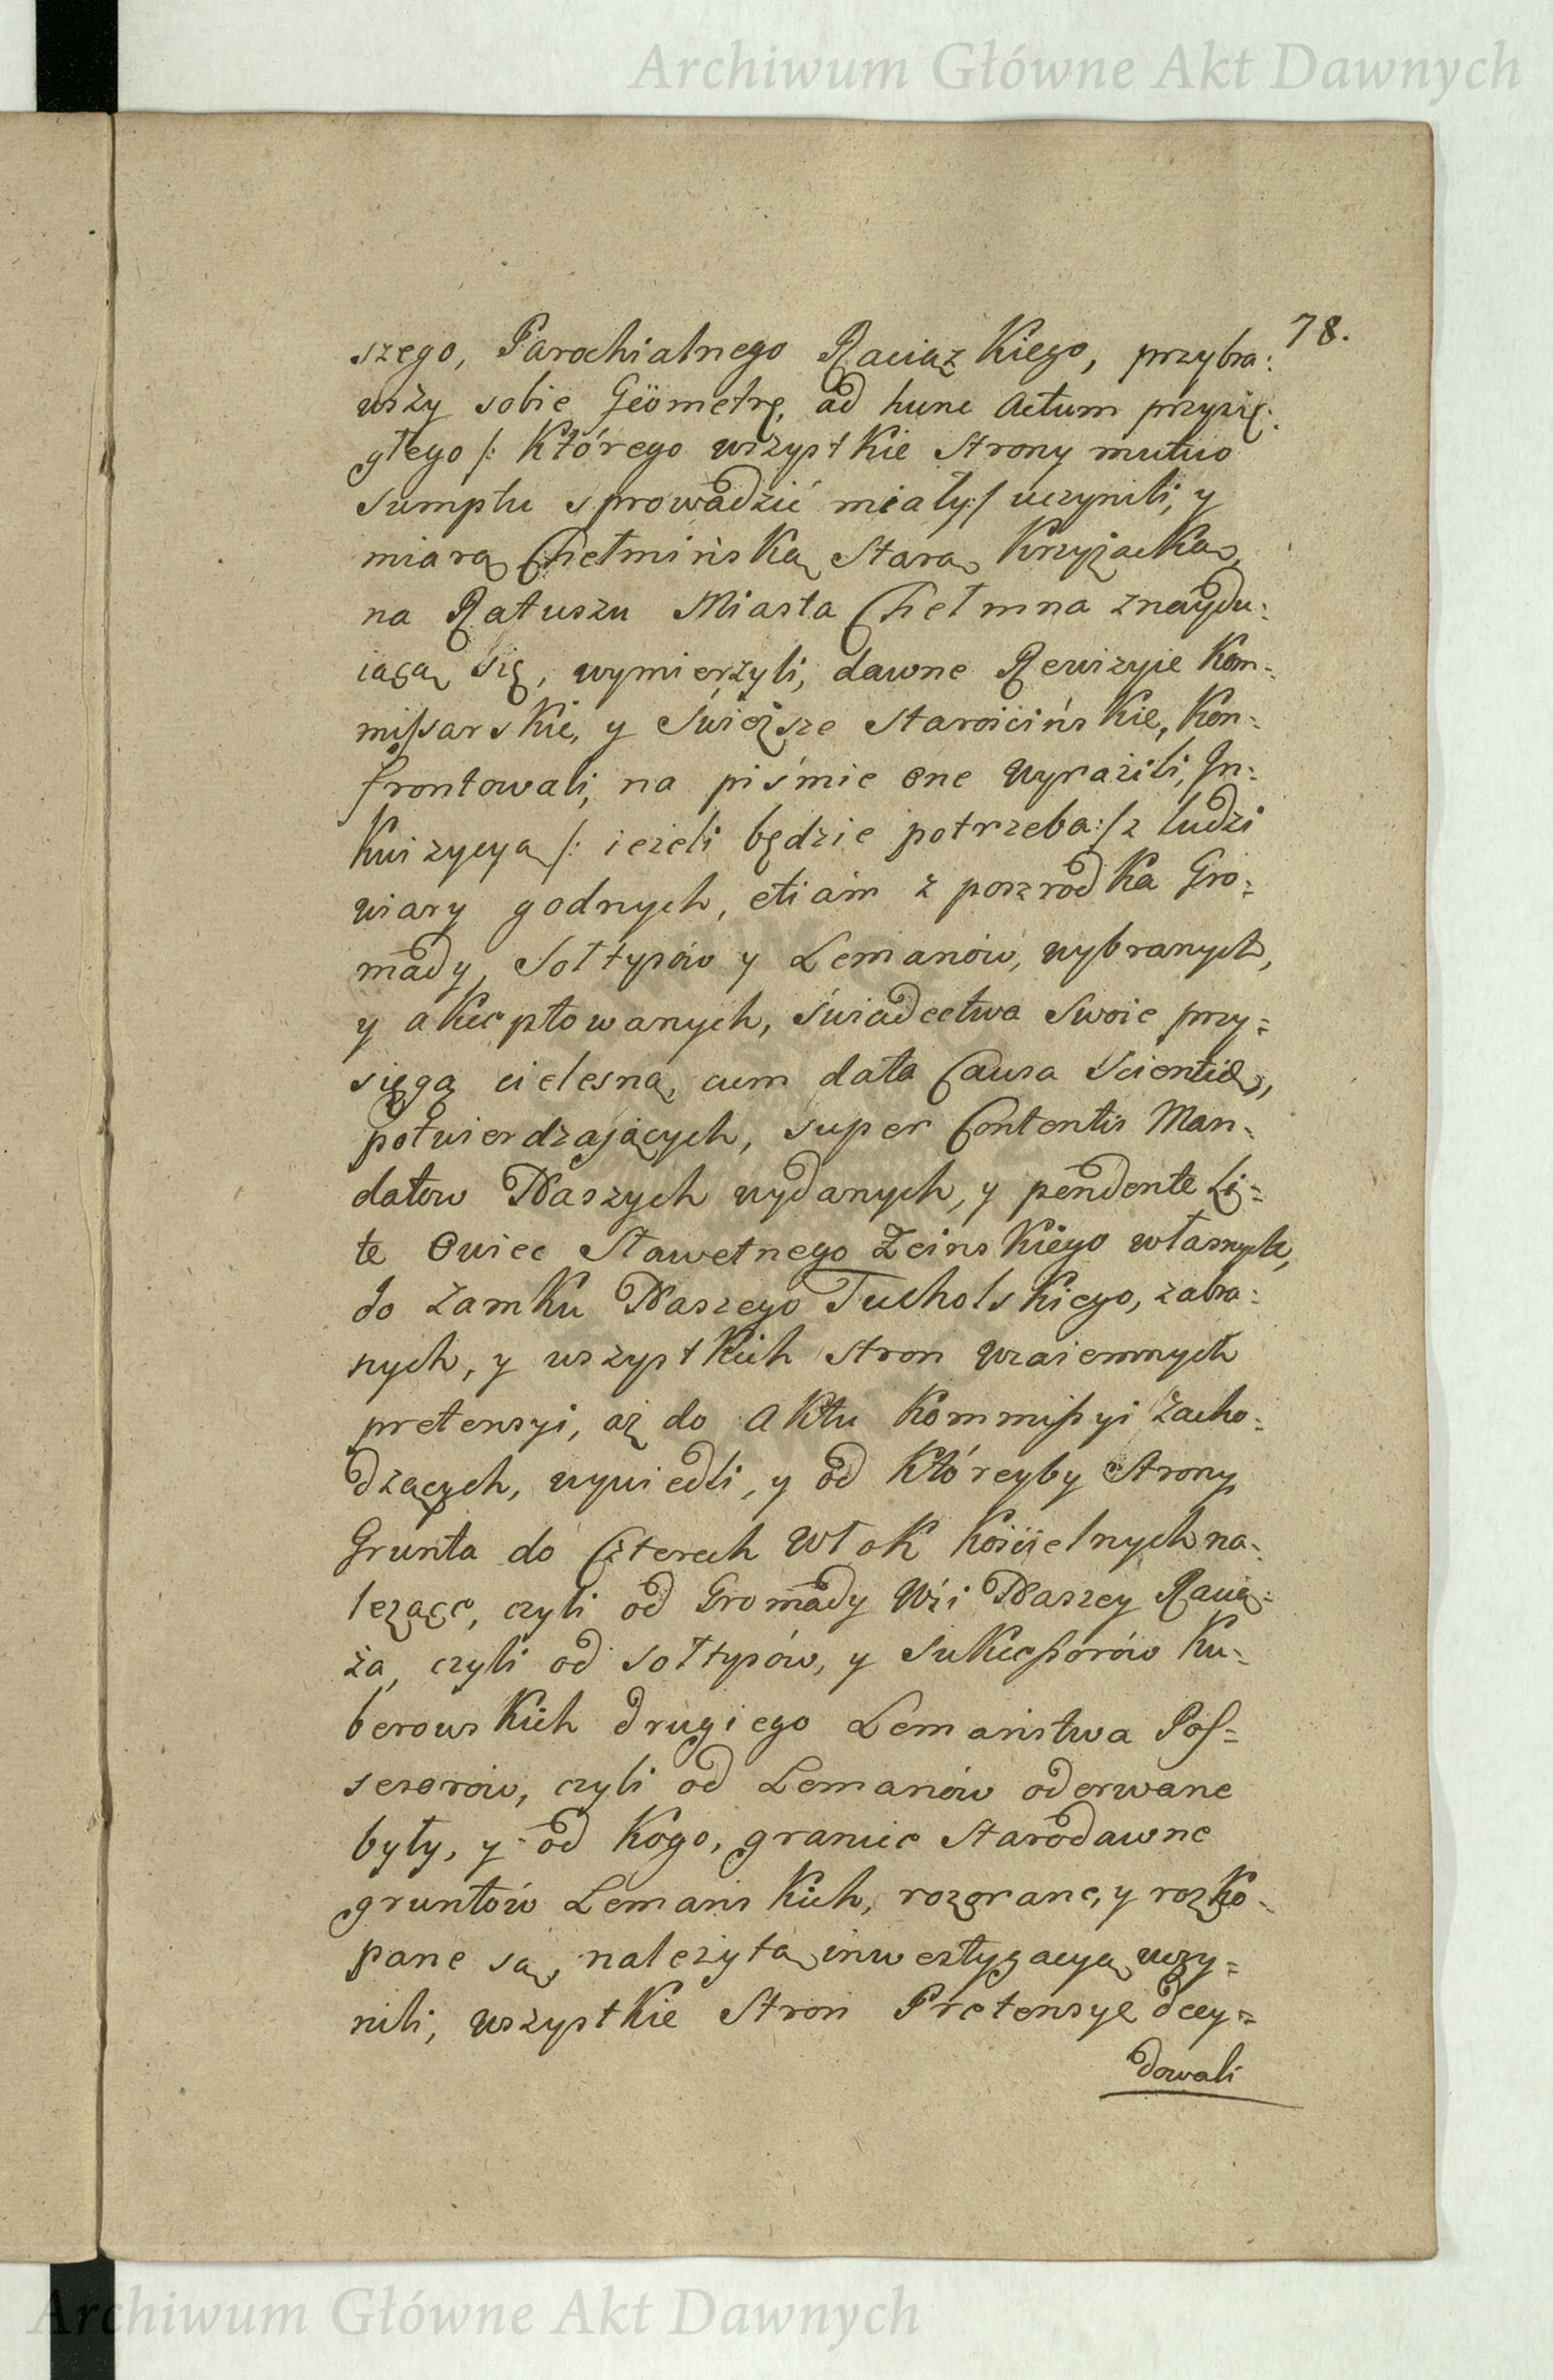 Archiwum Główne Akt Dawnych
78.
szego, Parochialnego Raciązkiego, przybra:
wszy sobie Geömetrę, ad hunc Actum przysię:
głego /: Którego wszystkie Strony mutuo
sumptu sprowadzić miały:/ uczynili, y
miarą Chełmińską Starą Krzyżacką,
na Ratuszu Miasta Chełmna znaydu:
iącą się, wymierzyli, dawne Rewizyie Kom=
missarskie, y Świeższe Starościńskie, Kon=
frontowali, na piśmie one wyrazili, In=
kwizycyą /: ieżeli będzie potrzeba:/ z ludzi
wiary godnych, etiam z poszrodka Gro=
mady, Sołtysów y Lemanów, wybranych,
y akceptowanych, świadectwa Swoie przy=
sięgą cielesną, cum data Causa Scientiæ,
potwierdzaiących, super Contentis Man=
datow Naszych wydanych, y pendente Li=
te Owiec Sławetnego Zeinskiego własnych,
do Zamku Naszego Tucholskiego, zabra:
nych, y wszystkich stron wzaiemnych
pretensyi, aż do Aktu Kommissyi zacho=
dzących, wywiedli, y od Któreyby Strony
Grunta do Czterech Włok Kościelnych na=
leżące, czyli od Gromady Wsi Naszey Racią=
ża, czyli od Sołtysów, y Sukcessorów Ku=
berowskich drugiego Lemaństwa Pos=
sesorów, czyli od Lemanów oderwane
były, y od Kogo, granice Starodawne
gruntów Lemańskich, rozorane, y rozko=
pane są, należytą inwestygacyą uczy=
nili, wszystkie Stron Pretensye decy=
dowali
Archiwum Główne Akt Dawnych